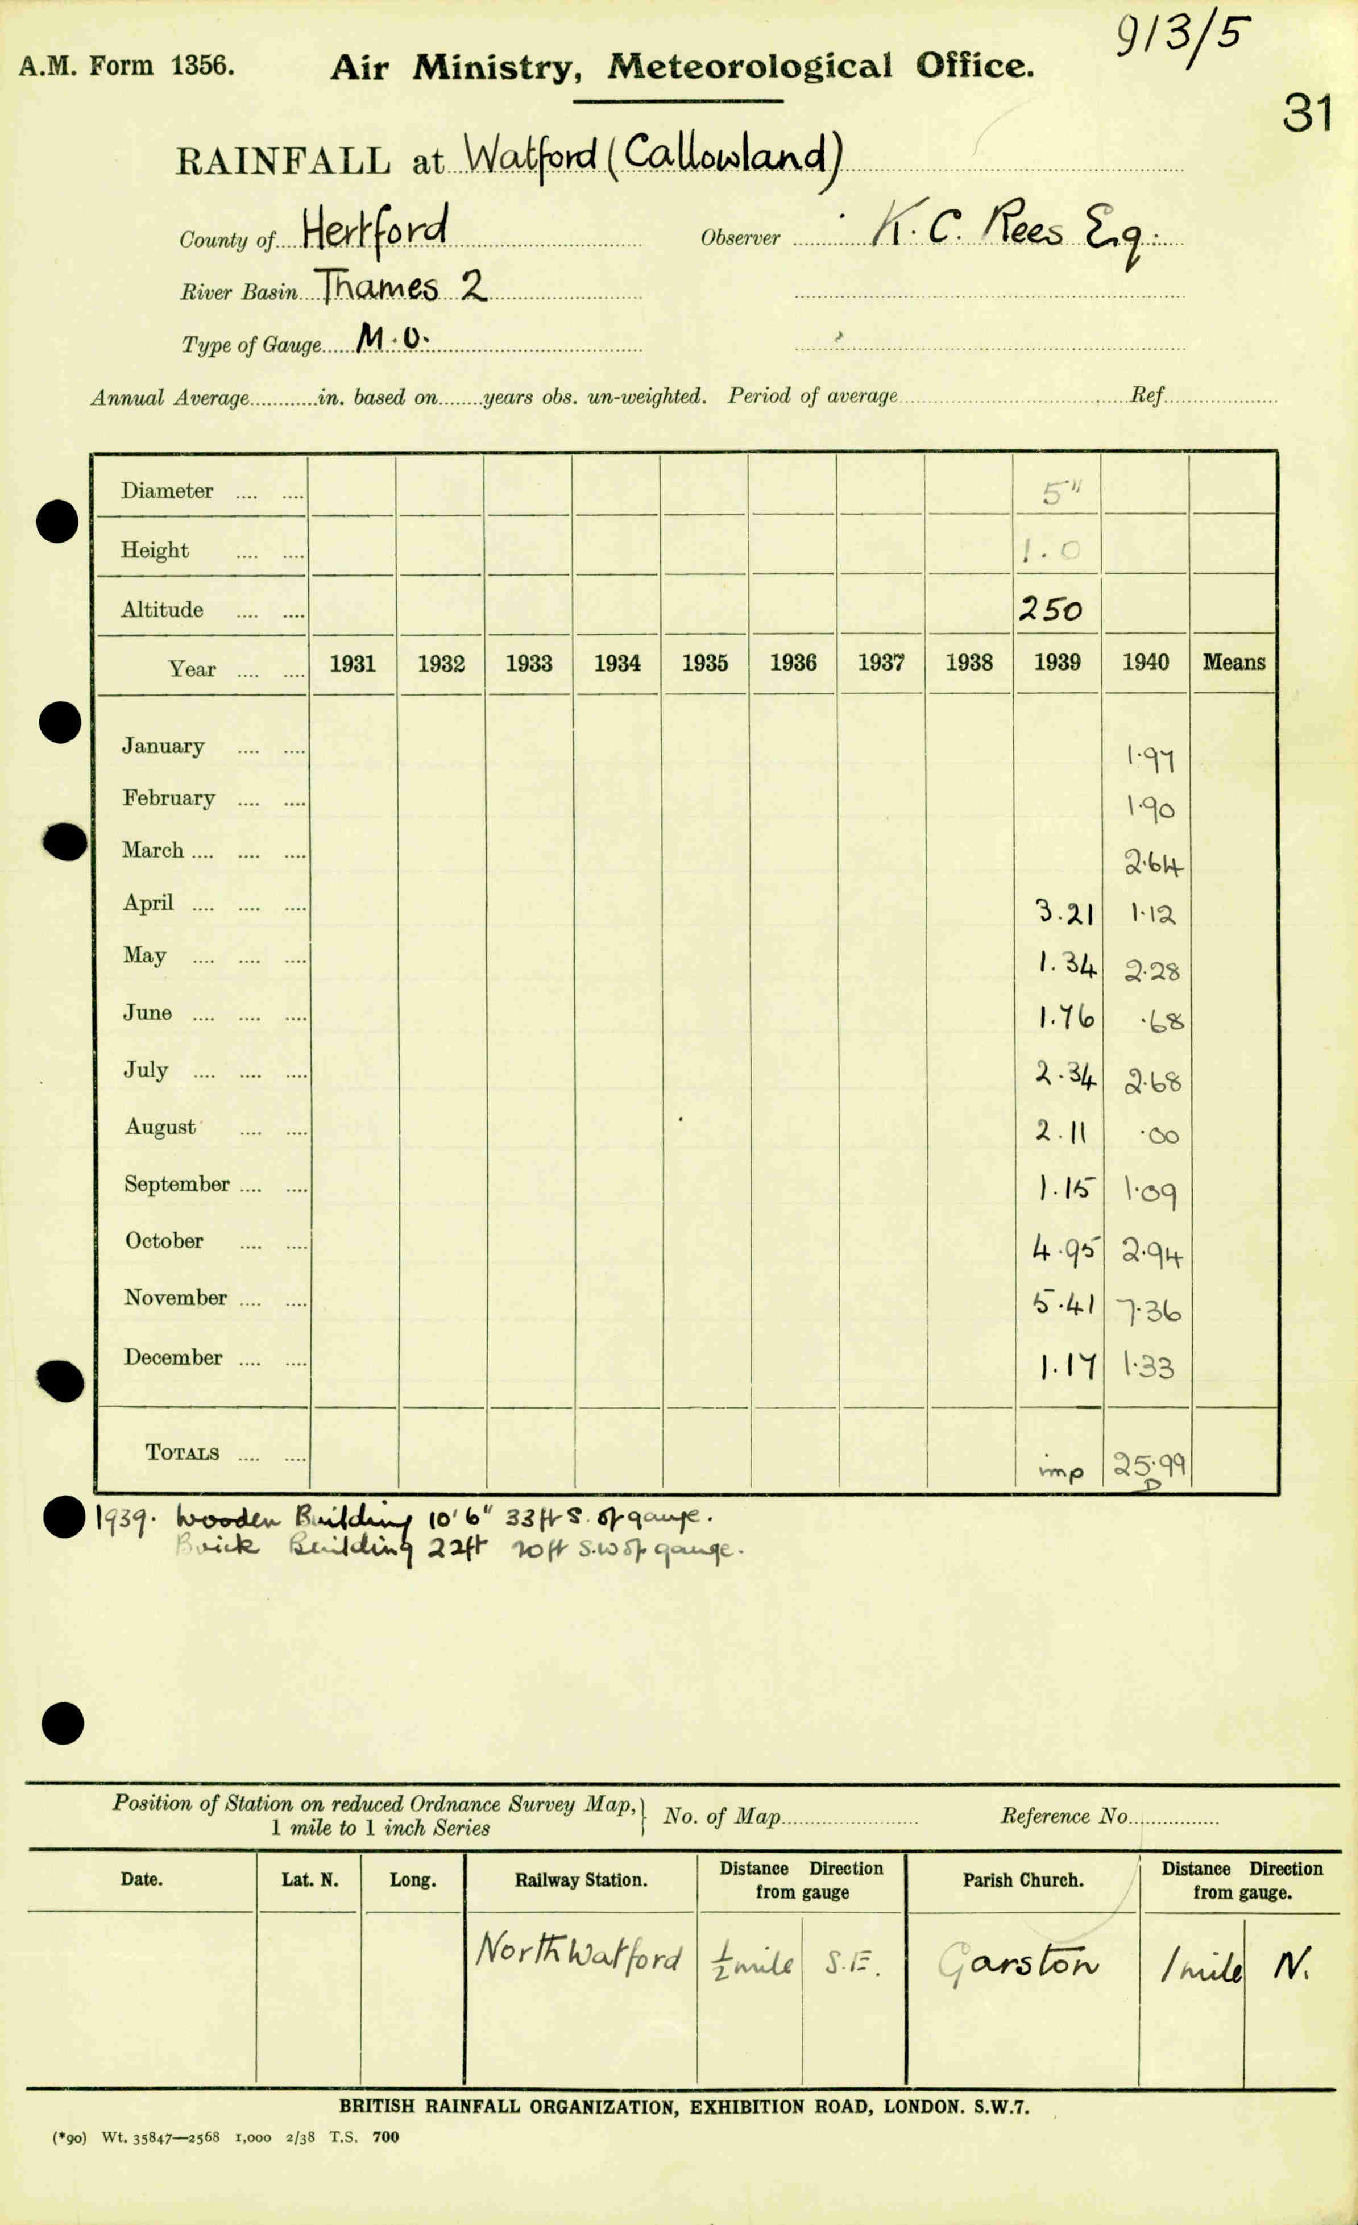 913/5
A.M. Form 1356. Air Ministry, Meteorological Office.
31
RAINFALL at Watford (Callowland)
County of Hertford Observer K. C. Rees Esq.
River Basin Thames 2
Type of Gauge M.O.
Annual Average in. based on years obs. un-weighted. Period of average Ref.
Diameter 5"
Height 1.0
Altitude 250
Year 1931 1932 1933 1934 1935 1936 1937 1938 1939 1940 Means
January 1.97
February 1.90
March 2.64
April 3.21 1.12
May 1.34 2.28
June 1.76 .68
July 2.34 2.68
August 2.11 .00
September 1.15 1.09
October 4.95 2.94
November 5.41 7.36
December 1.17 1.33
TOTALS imp 25.99
D
1939. Wooden Building 10'6" 33ft S. of gauge.
Brick Building 22ft 20ft S.W of gauge.
Position of Station on reduced Ordnance Survey Map, 1 mile to 1 inch Series } No. of Map Reference No.
Date. Lat. N. Long. Railway Station. Distance Direction from gauge Parish Church. Distance Direction from gauge.
North Watford ½ mile S.E. Garston 1 mile N.
BRITISH RAINFALL ORGANIZATION, EXHIBITION ROAD, LONDON. S.W.7.
(*90) Wt. 35847—2568 1,000 2/38 T.S. 700